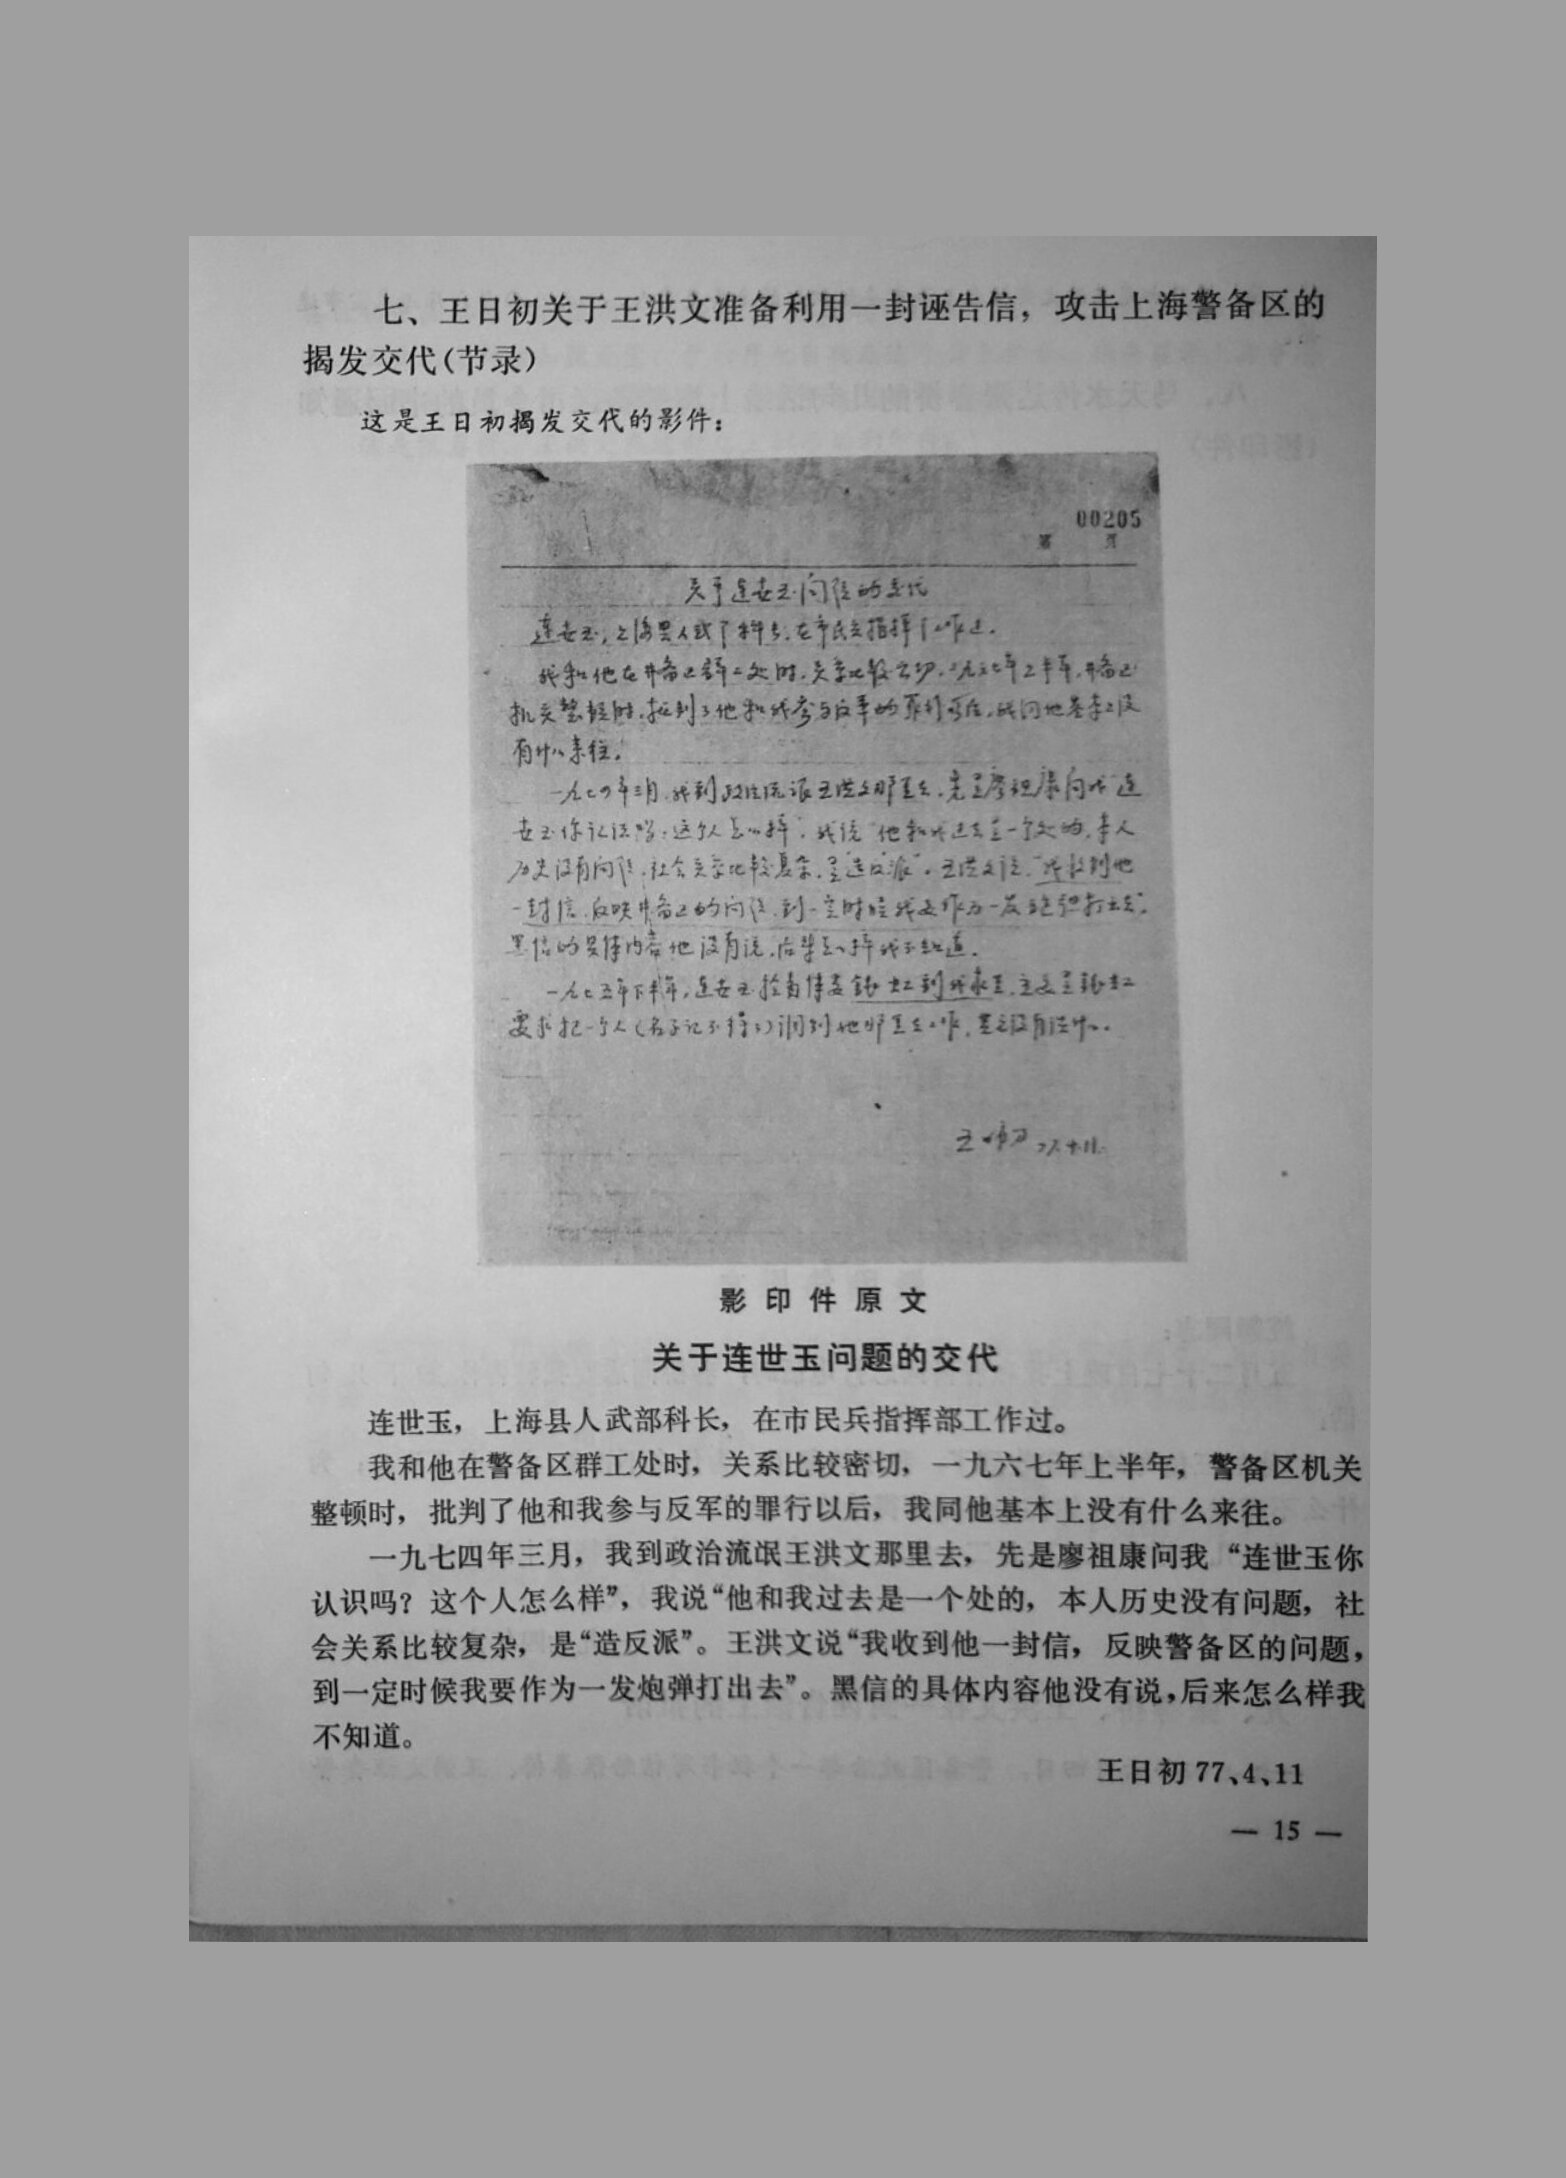 七、王日初关于王洪文准备利用一封诬告信，攻击上海警备区的
揭发交代（节录）
这是王日初揭发交代的影件：
00205
第 页
关于连世玉问题的交代
连世玉，上海县人武部科长，在市民兵指挥部工作过。
我和他在警备区群工处时，关系比较密切，一九六七年上半年，警备区
机关整顿时，批判了他和我参与反军的罪行以后，我同他基本上没
有什么来往。
一九七四年三月，我到政治流氓王洪文那里去，先是廖祖康问我“连
世玉你认识吗？这个人怎么样”，我说“他和我过去是一个处的，本人
历史没有问题，社会关系比较复杂，是“造反派”。王洪文说“我收到他
一封信，反映警备区的问题，到一定时候我要作为一发炮弹打出去”。
黑信的具体内容他没有说，后来怎么样我不知道。
一九七五年下半年，连世玉 到我家里，主要是
要求把一个人（名字记不得了）调到他那里去工作，
王日初 77.4.11.
影印件原文
关于连世玉问题的交代
连世玉，上海县人武部科长，在市民兵指挥部工作过。
我和他在警备区群工处时，关系比较密切，一九六七年上半年，警备区机关
整顿时，批判了他和我参与反军的罪行以后，我同他基本上没有什么来往。
一九七四年三月，我到政治流氓王洪文那里去，先是廖祖康问我“连世玉你
认识吗？这个人怎么样”，我说“他和我过去是一个处的，本人历史没有问题，社
会关系比较复杂，是“造反派”。王洪文说“我收到他一封信，反映警备区的问题，
到一定时候我要作为一发炮弹打出去”。黑信的具体内容他没有说，后来怎么样我
不知道。
王日初 77、4、11
— 15 —